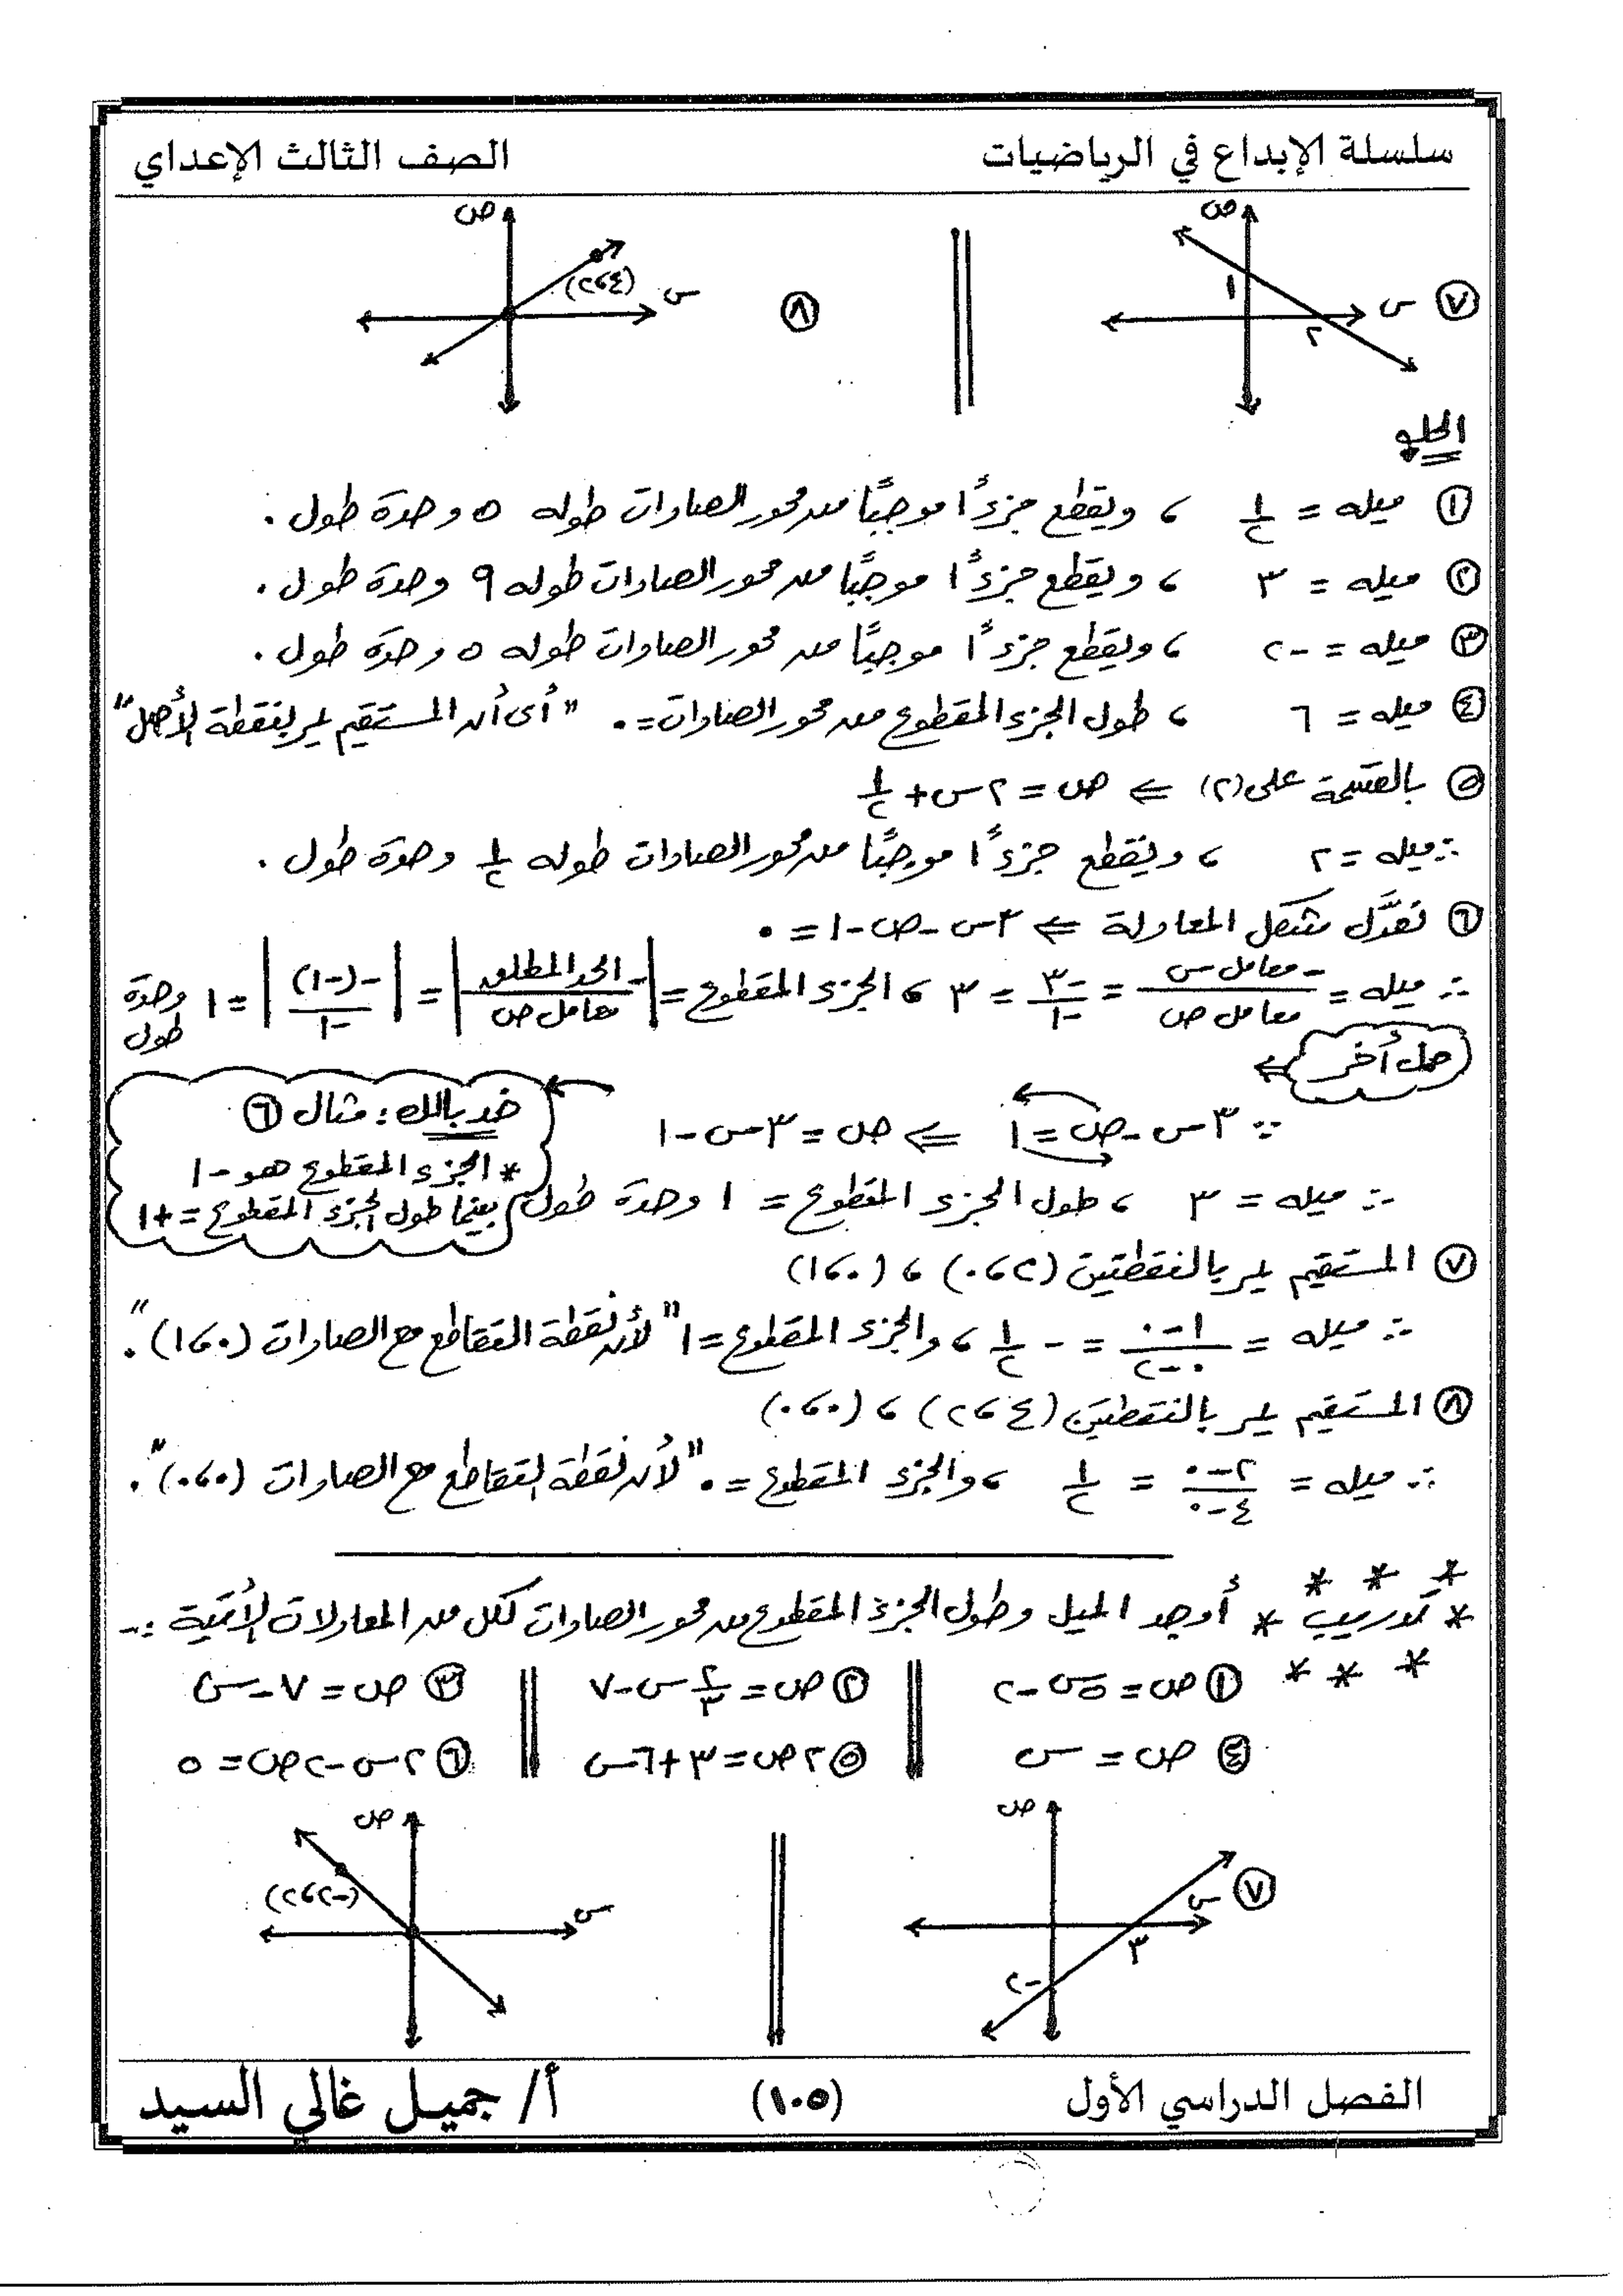 سلسلة الإبداع في الرياضيات
الصف الثالث الإعداي
٧
ص
س
١
٢
٨
ص
س
(٤،٢)
الحل
١ ميله = ١/٢ ، ويقطع جزءًا موجبًا من محور الصادات طوله ٥ وحدة طول .
٢ ميله = ٣ ، ويقطع جزءًا موجبًا من محور الصادات طوله ٩ وحدة طول .
٣ ميله = -٢ ، ويقطع جزءًا موجبًا من محور الصادات طوله ٥ وحدة طول .
٤ ميله = ٦ ، طول الجزء المقطوع من محور الصادات = ٠ "أى أن المستقيم يمر بنقطة الأصل"
٥ بالقسمة على (٢) ⇐ ص = ٢س + ١/٢
∴ ميله = ٢ ، ويقطع جزءًا موجبًا من محور الصادات طوله ١/٢ وحدة طول .
٦ نعدَّل شكل المعادلة ⇐ ٣س - ص - ١ = ٠
∴ ميله = -معامل س/معامل ص = -٣/-١ = ٣ ، الجزء المقطوع = |-الحد المطلق/معامل ص| = |-(-١)/-١| = ١ وحدة طول
حل أخر ⇐
∵ ٣س - ص = ١ ⇐ ص = ٣س - ١
∴ ميله = ٣ ، طول الجزء المقطوع = ١ وحدة طول
خد بالك : مثال ٦
* الجزء المقطوع هو -١
بينما طول الجزء المقطوع = +١
٧ المستقيم يمر بالنقطتين (٢،٠) ، (٠،١)
∴ ميله = ١-٠/٠-٢ = -١/٢ ، والجزء المقطوع = ١ "لأن نقطة التقاطع مع الصادات (٠،١)" .
٨ المستقيم يمر بالنقطتين (٤،٢) ، (٠،٠)
∴ ميله = ٢-٠/٤-٠ = ١/٢ ، والجزء المقطوع = ٠ "لأن نقطة التقاطع مع الصادات (٠،٠)" .
* * *
* تدريب * أوجد الميل وطول الجزء المقطوع من محور الصادات لكل من المعادلات الأتية :-
* * *
١ ص = ٥س - ٢
٢ ص = ٢/٣ س - ٧
٣ ص = ٧ - س
٤ ص = س
٥ ٢ص = ٣ + ٦س
٦ ٢س - ٢ص = ٥
٧
ص
س
٣
-٢
ص
س
(-٢،٢)
الفصل الدراسي الأول
(١٠٥)
أ/ جميل غالي السيد